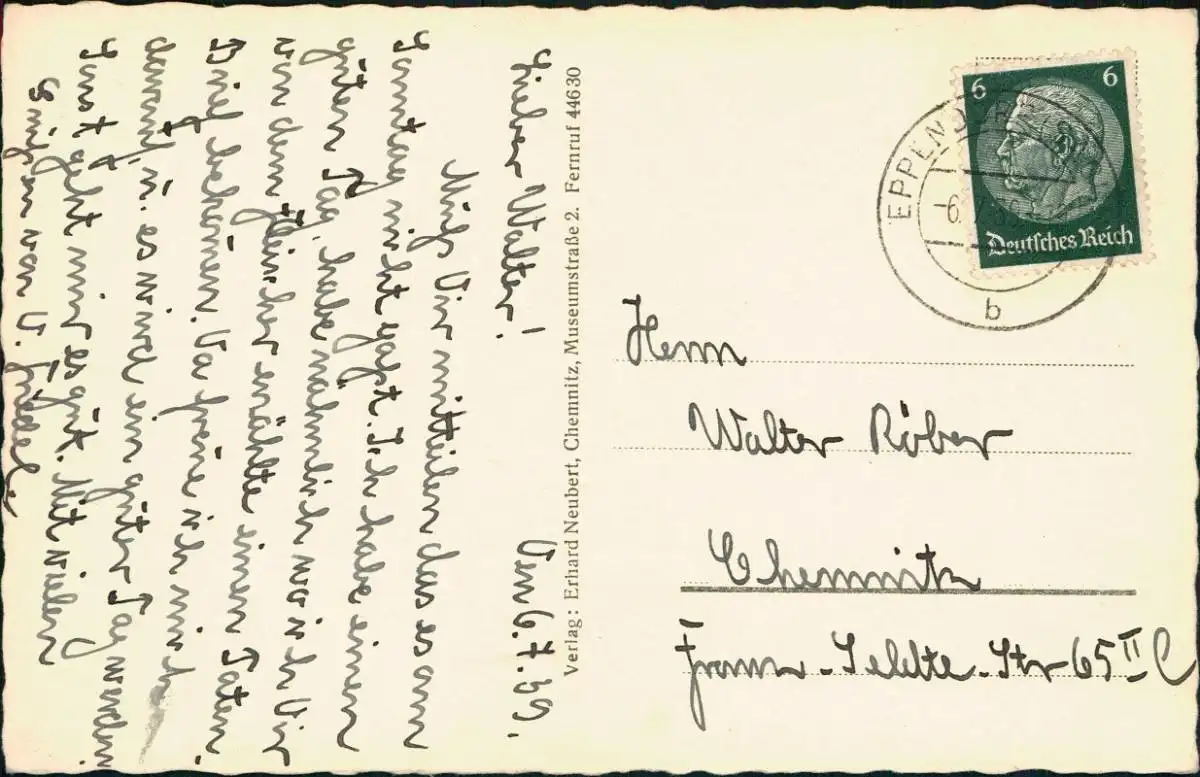 Den 6.7.39.
Lieber Walter!
Muß Dir mitteilen das es am
Sonntag nicht geht. Ich habe einen
guten Tag, habe nämlich wo ich Dir
von dem erzählte einen
Brief bekommen. Da freue ich mich
darauf, u. es wird ein guter Tag werden.
Sonst geht mir es gut. Mit vielen
Grüßen von D. Friedel.
Verlag: Erhard Neubert, Chemnitz, Museumstraße 2. Fernruf 44630
6 6
Deutsches Reich
EPPENDORF
-6.7.
b
Herrn
Walter Röber
Chemnitz
Franz-Seldte-Str 65 II